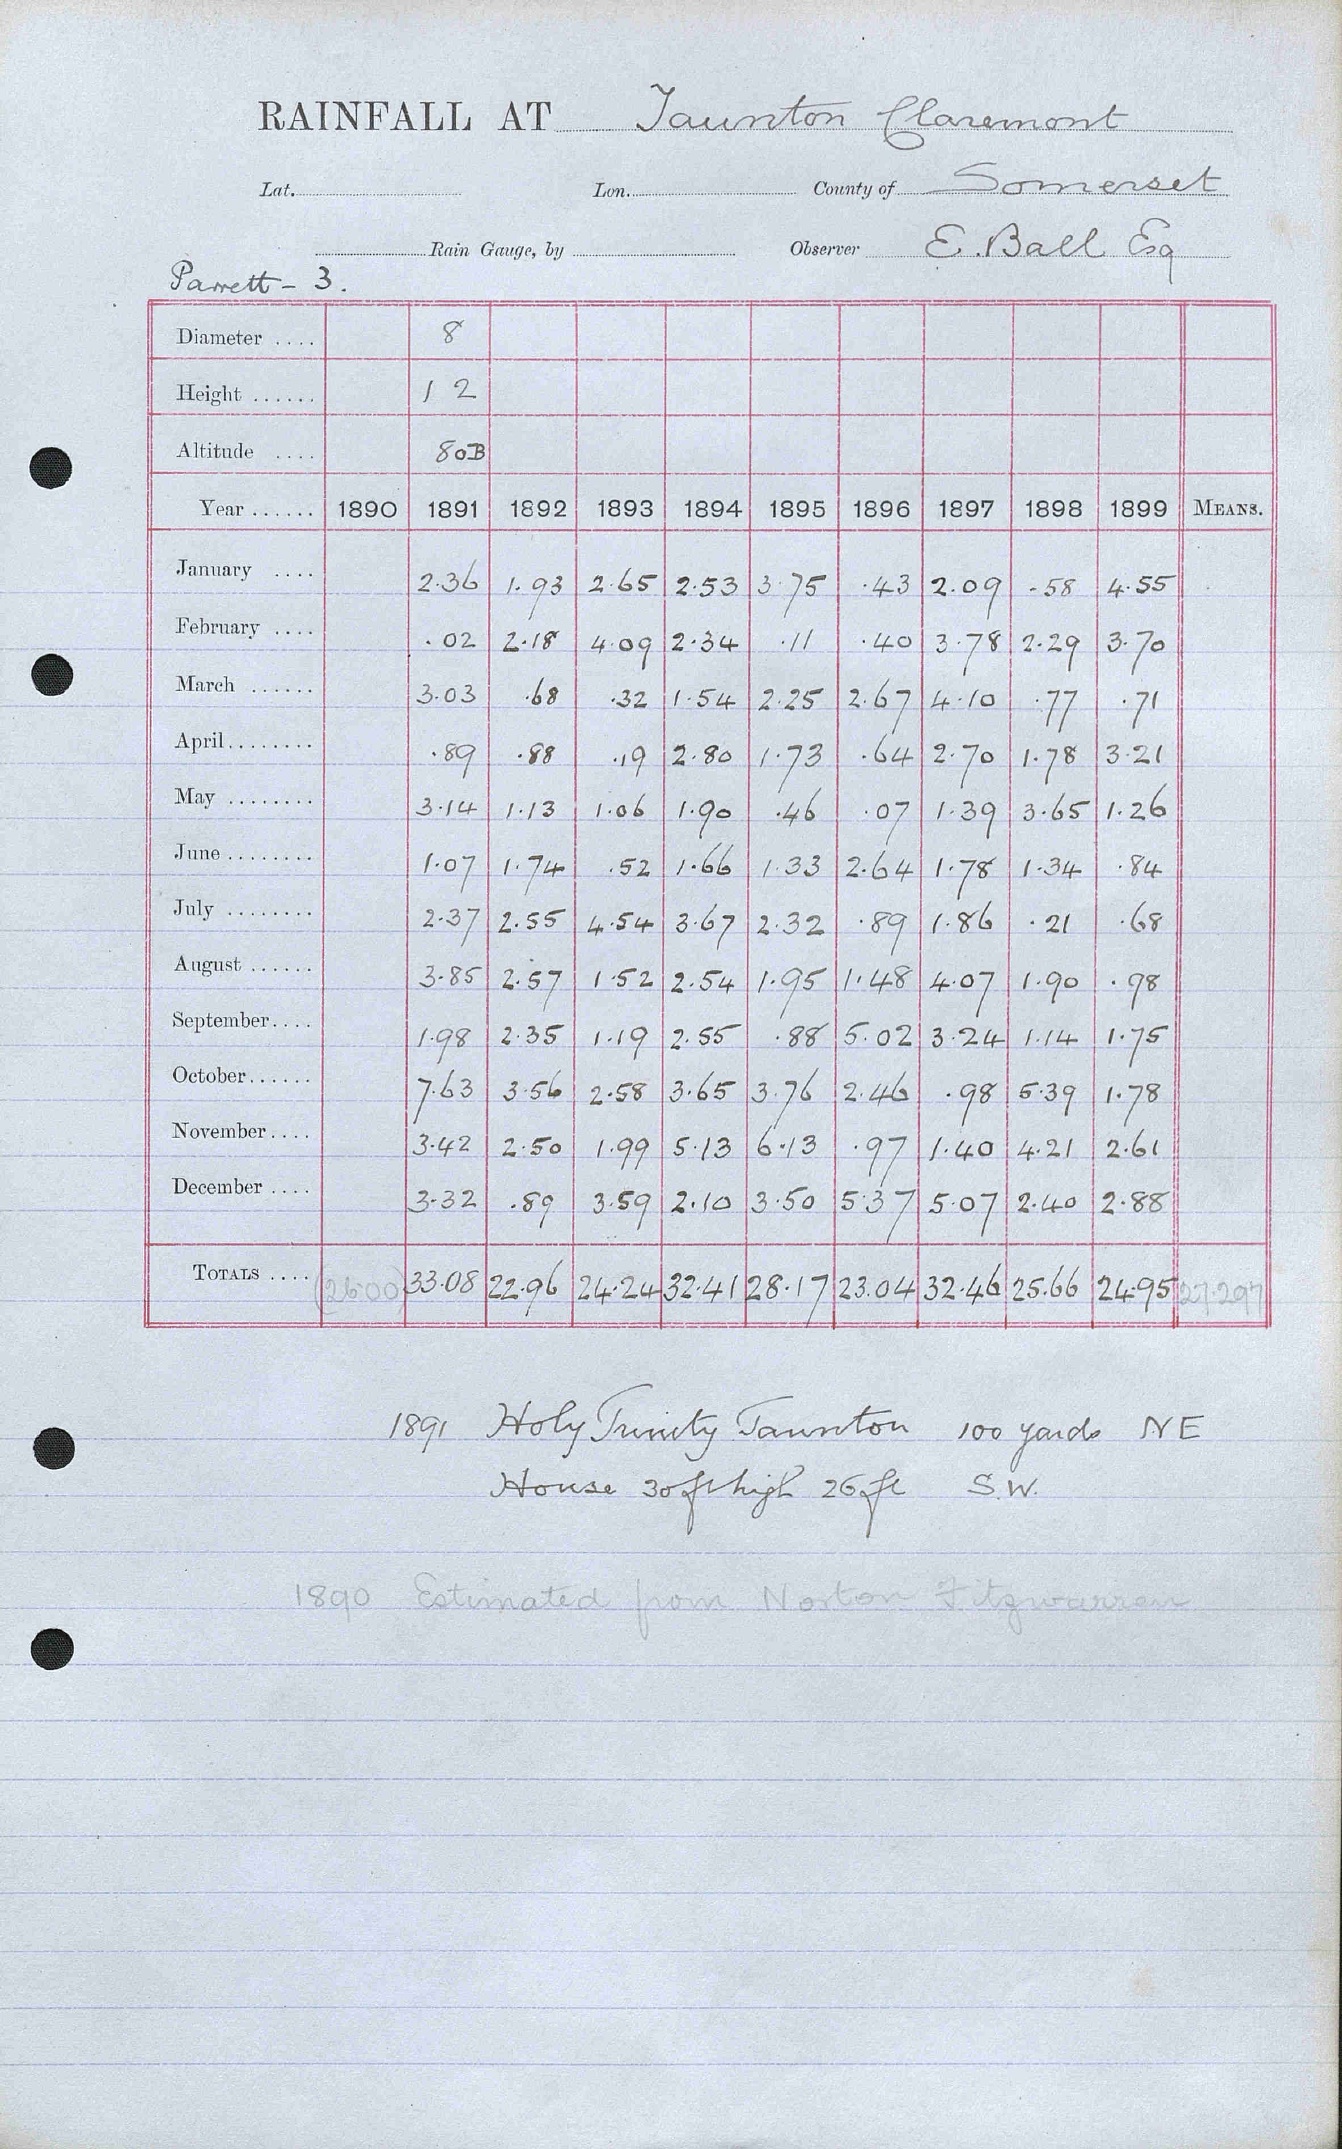 RAINFALL AT Taunton Claremont
Lat. Lon. County of Somerset
Rain Gauge, by Observer E. Ball Esq
Parrett - 3.
Diameter .... 8
Height ...... 1 2
Altitude .... 80B
Year ...... 1890 1891 1892 1893 1894 1895 1896 1897 1898 1899 MEANS.
January .... 2.36 1.93 2.65 2.53 3.75 .43 2.09 .58 4.55
February .... .02 2.18 4.09 2.34 .11 .40 3.78 2.29 3.70
March ...... 3.03 .68 .32 1.54 2.25 2.67 4.10 .77 .71
April ........ .89 .88 .19 2.80 1.73 .64 2.70 1.78 3.21
May ........ 3.14 1.13 1.06 1.90 .46 .07 1.39 3.65 1.26
June ........ 1.07 1.74 .52 1.66 1.33 2.64 1.78 1.34 .84
July ........ 2.37 2.55 4.54 3.67 2.32 .89 1.86 .21 .68
August ...... 3.85 2.57 1.52 2.54 1.95 1.48 4.07 1.90 .98
September .... 1.98 2.35 1.19 2.55 .88 5.02 3.24 1.14 1.75
October ...... 7.63 3.56 2.58 3.65 3.76 2.46 .98 5.39 1.78
November .... 3.42 2.50 1.99 5.13 6.13 .97 1.40 4.21 2.61
December .... 3.32 .89 3.59 2.10 3.50 5.37 5.07 2.40 2.88
TOTALS .... (26.00) 33.08 22.96 24.24 32.41 28.17 23.04 32.46 25.66 24.95 27.297
1891 Holy Trinity Taunton 100 yards NE
House 30 ft high 26 ft S.W.
1890 Estimated from Norton Fitzwarren